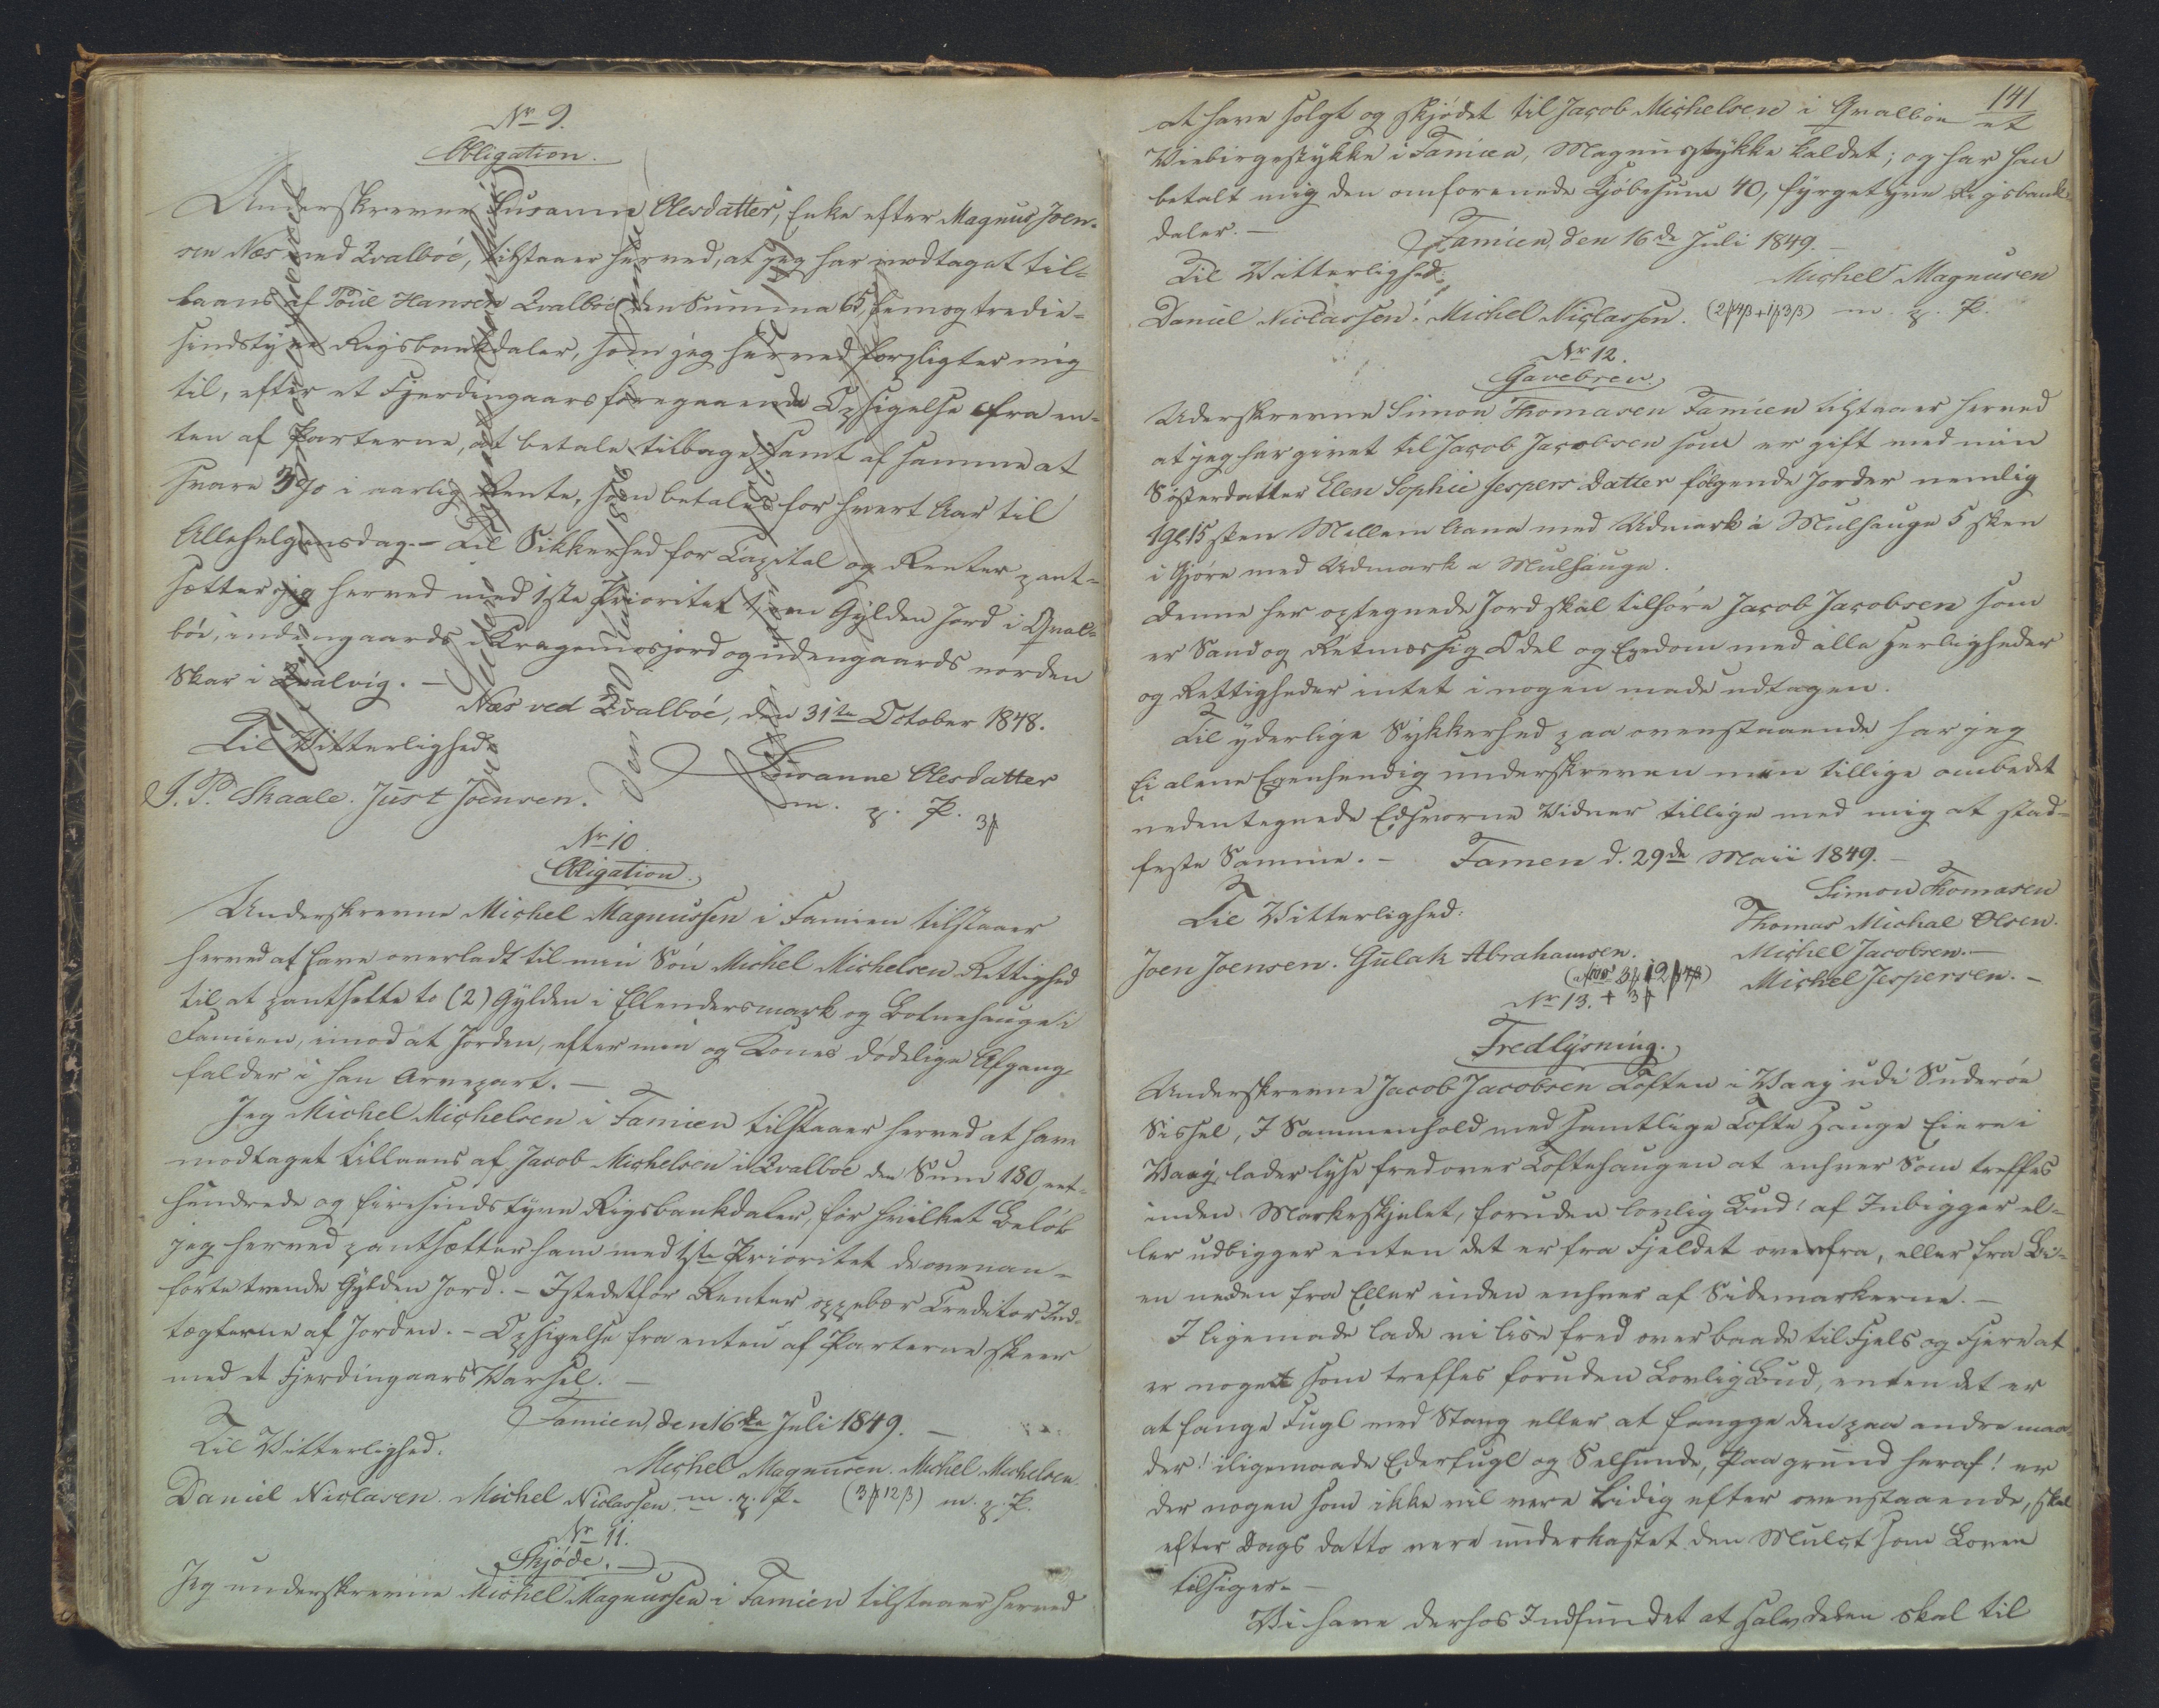 Nr 9.
Obligation.
Underskrevne Susanne Olesdatter, Enke efter Magnus Joen-
sen Næs ved Qvalböe, tilstaaer herved, at jeg har modtaget til-
laans af Poul Hansen Qvalböe den Summa 65, fem og tredie-
sindstyve Rigsbankdaler, som jeg herved forpligter mig
til, efter et Fjerdingaars foregaaende Opsigelse fra en-
ten af Parterne, at betale tilbage samt af samme at
svare 3 % i aarlig Rente, som betales for hvert Aar til
Allehelgensdag. – Til Sikkerhed for Capital og Renter pant-
sætter jeg herved med 1ste Prioritet 1, en Gylden Jord i Qval-
böe, indengaards i Kragemosjord og udengaards norden
Skar i Qvalvig. –
Næs ved Qvalböe, den 31te October 1848.
Til Vitterlighed:
Susanne Olesdatter
J. P. Skaale. Just Joensen.
m. p. P. 3ſ
Nr 10.
Obligation.
Underskrevne Michel Magnussen i Famien tilstaaer
herved at have overladt til min Sön Michel Michelsen Rettighed
til at pantsette to (2) Gylden i Ellendersmark og Botnehauge i
Famien, imod at Jorden, efter min og Kones dödelige Afgang
falder i han Arvepart. –
Jeg Michel Michelsen i Famien tilstaaer herved at have
modtaget tillaans af Jacob Michelsen i Qvalböe den Sum 180, eet-
hundrede og firesindstyve Rigsbankdaler, for hvilket Belöb
jeg herved pantsætter ham med 1ste Prioritet de ovenan-
förte tvende Gylden Jord. – Istedetfor Renter oppebær Creditor Ind-
tægterne af Jorden. – Opsigelse fra enten af Parterne skeer
med et Fjerdingaars Varsel. –
Famien, den 16de Juli 1849. –
Til Vitterlighed:
Michel Magnusen. Michel Michelsen.
Daniel Niclasen. Michel Niclassen. m. p. P. (3ſ 12 ß) m. p. P.
Nr 11.
Skjöde. –
Jeg underskrevne Michel Magnussen i Famien tilstaaer herved
141
at have solgt og skjödet til Jacob Michelsen i Qvalböe et
Viebirgestykke i Famien, Magnusstykke kaldet; og har han
betalt mig den omforenede Kjöbesum 40, fyrgetyve Rigsbank-
daler. –
Famien, den 16de Juli 1849. –
Til Vitterlighed:
Michel Magnusen
Daniel Niclassen. Michel Niclassen. (2ſ4ß+1ſ3ß) m. p. P.
Nr 12.
Gavebrev.
Uderskrevne Simon Thomasen Famien tilstaaer herved
at jeg har givet til Jacob Jacobsen som er gift med min
Sösterdatter Elen Sophie Jespers Datter fölgende Jorder nemlig
1 Gl 15 sken Mellem Aana med Udmark a Mulhauge 5 sken
i Gjöre med Udmark a Mulhauge.
Denne her optegnede Jord skal tilhöre Jacob Jacobsen som
er Sand og Retmæssig Odel og Egedom med alle Herligheder
og Rettigheder intet i nogen made udtagen.
Til yderlige Sykkerhed paa ovenstaaende har jeg
Ei alene Egenhendig underskreven men tillige ombedet
nedentegnede Edsvorne Vidner tillige med mig at stad-
feste Samme. – Famen d. 29de Maii 1849. –
Simon Thomasen
Til Vitterlighed:
Thomas Michal Olsen.
Joen Joensen. Gulak Abrahamsen.
Michel Jacobsen. –
Michel Jespersen. –
Nr 13. + 3ſ
Fredlysning.
Underskrevne Jacob Jacobsen Toften i Vaag udi Suderöe
Sissel, I Sammenhold med samtlige Tofte Hauge Eiere i
Vaag, lader lyse fred over Toftehaugen at enhver Som treffes
inden Markeskjelet, foruden lovlig Bud! af Inbigger el-
ler udbigger enten det er fra Fjeldet ovenfra, eller fra Bi-
en neden fra Eller inden enhver af Sidemarkerne. –
I ligemade lade vi lise fred over baade til Fjels og Fjere at
er noget som treffes foruden Lovlig Bud, enten det er
at fange Fugl med Stang eller at fangge den paa andre maa-
der! iligemaade Ederfugl og Selhunde, Paa grund heraf! er
der nogen som ikke vil vere lidig efter ovenstaaende, skal
efter Dags datto vere underkastet den Mulct som Loven
tilsiger. –
Vi have derhos Indfundet at halvdelen skal til